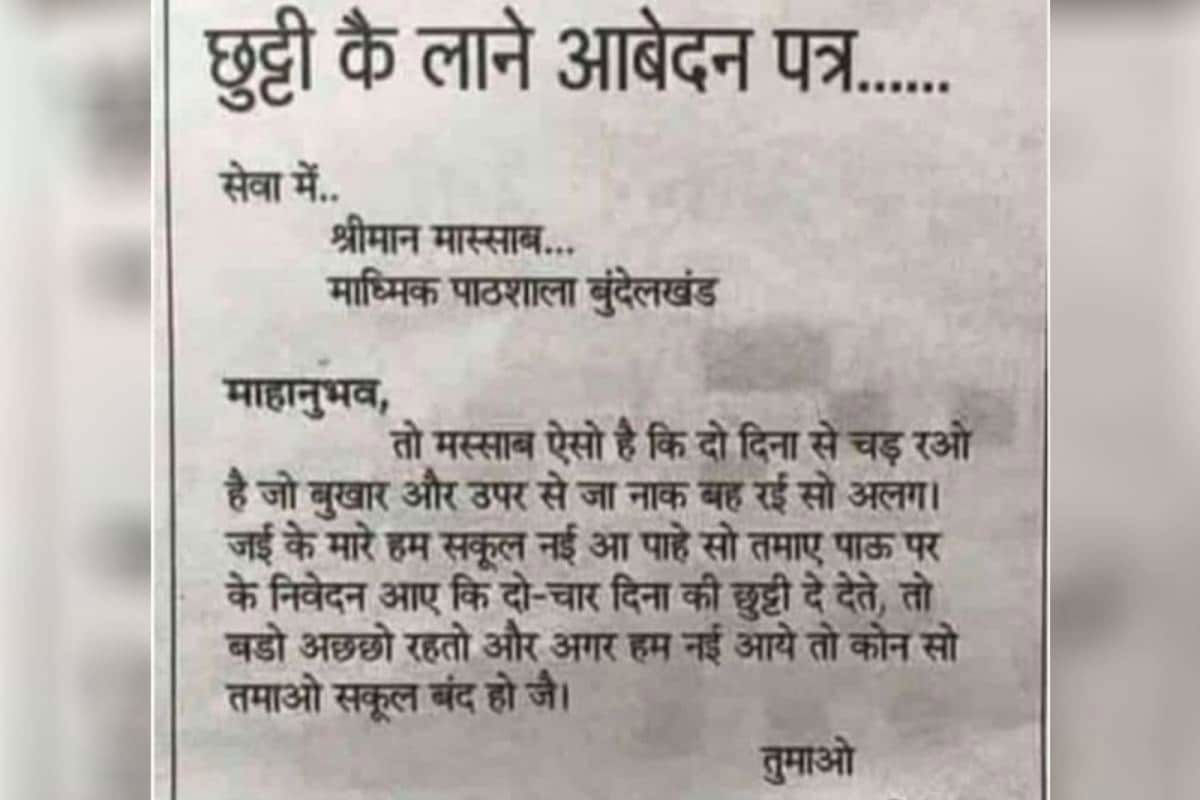 छुट्टी कै लाने आबेदन पत्र......
सेवा में..
श्रीमान मास्साब...
माध्मिक पाठशाला बुंदेलखंड
माहानुभव,
तो मस्साब ऐसो है कि दो दिना से चड़ रओ
है जो बुखार और उपर से जा नाक बह रई सो अलग।
जई के मारे हम सकूल नई आ पाहे सो तमाए पाऊ पर
के निवेदन आए कि दो-चार दिना की छुट्टी दे देते, तो
बडो अछछो रहतो और अगर हम नई आये तो कोन सो
तमाओ सकूल बंद हो जै।
तुमाओ